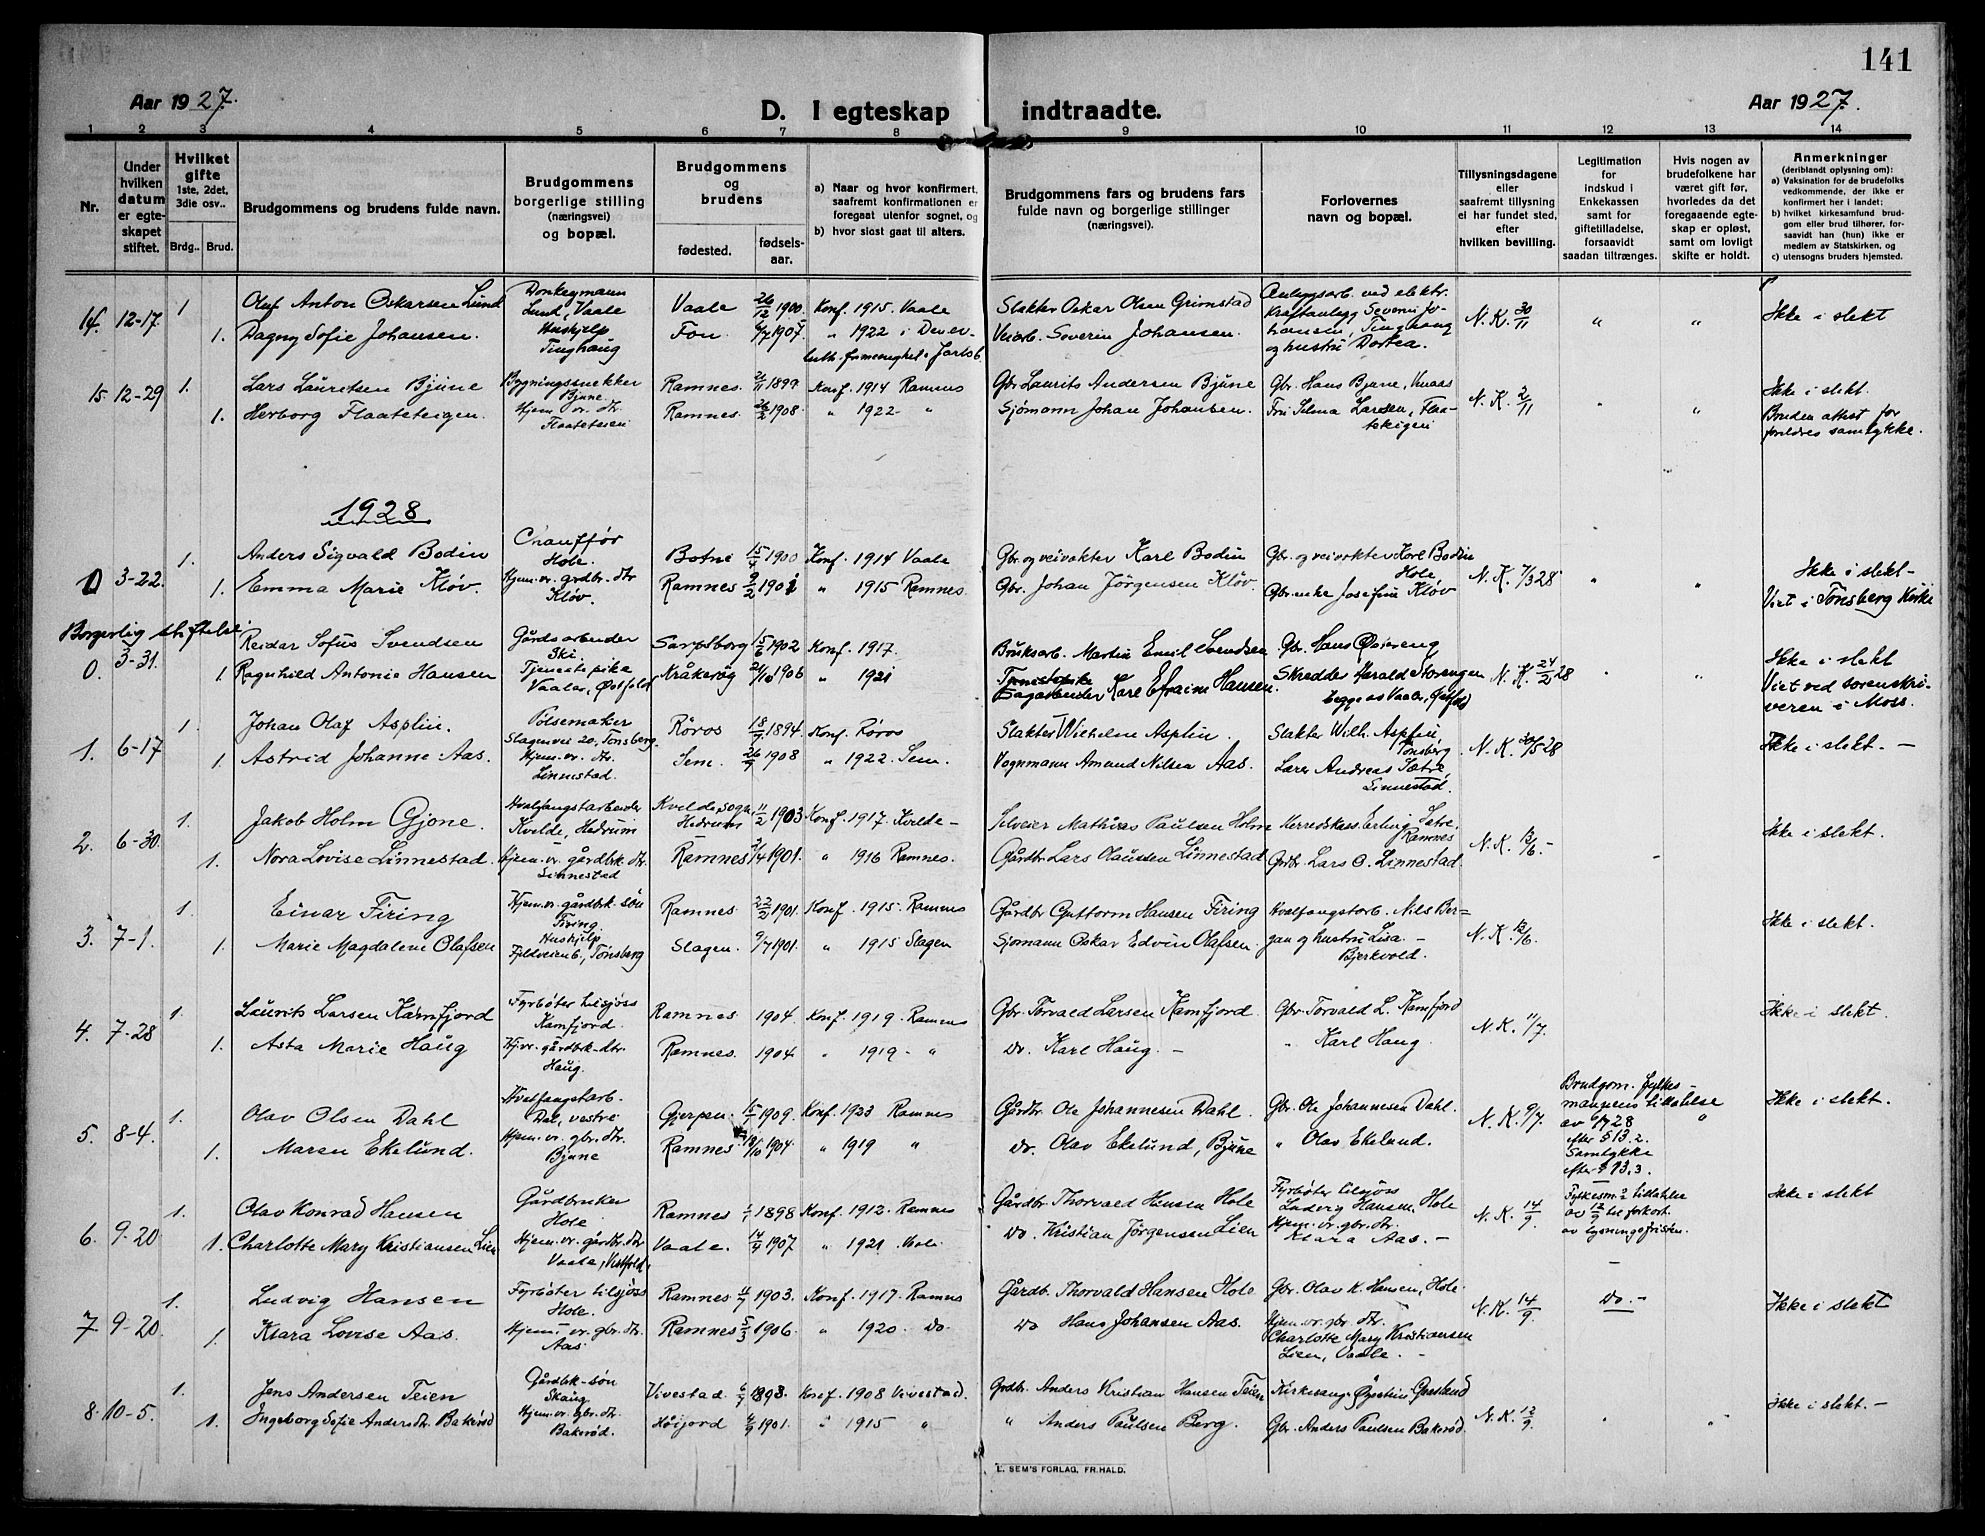 141
Aar 1927.
D. I egteskap indtraadte.
Aar 1927.
1 2 3 4 5 6 7 8 9 10 11 12 13 14
Nr.
Under hvilken datum er egte-skapet stiftet.
Hvilket gifte 1ste, 2det, 3die osv..
Brdg.. Brud.
Brudgommens og brudens fulde navn.
Brudgommens borgerlige stilling (næringsvei) og bopæl.
Brudgommens og brudens
fødested. fødsels-aar.
a) Naar og hvor konfirmert, saafremt konfirmationen er foregaat utenfor sognet, og
b) hvor sidst gaat til alters.
Brudgommens fars og brudens fars fulde navn og borgerlige stillinger (næringsvei).
Forlovernes navn og bopæl.
Tillysningsdagene eller saafremt tillysning ei har fundet sted, efter hvilken bevilling.
Legitimation for indskud i Enkekassen samt for giftetilladelse, forsaavidt saadan tiltrænges.
Hvis nogen av brudefolkene har været gift før, hvorledes da det foregaaende egte-skap er opløst, samt om lovligt skifte er holdt.
Anmerkninger (deriblandt oplysning om):
a) Vaksination for de brudefolks vedkommende, der ikke er konfirmert her i landet;
b) hvilket kirkesamfund brud-gom eller brud tilhører, for-saavidt han (hun) ikke er medlem av Statskirken, og
c) utensogns bruders hjemsted.
14. 12-17. 1 Oluf Anton Oskarsen Lund Donkeymann Lund, Vaale Vaale 26/12 1900 Konf. 1915. Vaale Slakter Oskar Olsen Grimstad Anlægsarb. ved elektr. Kraftanlegg Severin Jo-hansen, Tinghaug og hustru Dortea. N.K. 30/11 " " Ikke i slekt
1. Dagny Sofie Johansen. Hushjelp Tinghaug Fon 1907. " 1922 i Den ev. luth. frimenighet i Jarlsb. Veiarb. Severin Johansen.
15 12-29 1. Lars Lauritsen Bjune Bygningssnekker Bjune Ramnes. 1899 Konf. 1914 Ramnes Gbr. Laurits Andersen Bjune Gbr. Hans Bjune, Knaas N.K. 2/11 " " Ikke i slekt.
1. Herborg Flaateteigen. Hjem. vr. dtr. Flaateteien Ramnes. 26/2 1908 " 1922 " Sjømann Johan Johansen. Fru Selma Larsen, Flaa-teteigen Bruden attest for foreldres samtykke.
1928
0 3-22. 1. Anders Sigvald Bodin Chauffør Hole. Botne 15/4 1900 Konf. 1914 Vaale Gbr. og veivokter Karl Bodin Gbr. og veivokter Karl Bodin Hole N.K. 7/3 28 " " Ikke i slekt-
1. Emma Marie Kløv. Hjem. vr. grdbr. dtr Kløv. Ramnes 9/2 1901 " 1915 Ramnes. Gbr. Johan Jørgensen Kløv. Gbr. enke Josefine Kløv Viet i Tønsberg Kirke
Borgerlig stiftelse:
0. 3-31. Reidar Sofus Svendsen Gårdsarbeider Ski Sarpsborg 15/6 1902 Konf. 1917. Bruksarb. Martin Emil Svendsen Gbr. Hans Øiereng N.K. 24/2 28 " " Ikke i slekt
1 Ragnhild Antonie Hansen Tjenestepike Vaaler, Østfold Kråkerøy 21/10 1906 " 1921 Karl Efraim Hansen. Skredder Harald Storengen begge av Vaaler, Østfold Viet ved sorenskri-veren i Moss.
1. 6-17 1 Johan Olaf Asplin. Pølsemaker Slagenvei 20, Tønsberg. Røros 18/7 1894. Konf. Røros Slakter Wilhelm Asplin. Slakter Wilh. Asplin, Tønsberg N.K. 30/5 28 Ikke i slekt. -
1. Astrid Johanne Aas. Hjem. vr. dtr. Linnestad. Sem. 26/9 1908 " 1922. Sem. Vognmann Amund Nilsen Aas. Lærer Andreas Sætre, Linnestad.
2. 6-30 1. Jakob Holm Gjone. Hvalfangstarbeider Kvelde, Hedrum Kvelde sogn, Hedrum 11/2 1903 Konf. 1917. Kvelde - Mathias Paulsen Holm Herredskass. Erling Sætre, Ramnes N.K. 13/6. - - Ikke i slekt.
1. Nora Lovise Linnestad. Hjem. vr. gårdbrk. dtr. Linnestad Ramnes 1901. " 1916 Ramnes. Gårdbr. Lars Olaussen Linnestad Grdbr. Lars O. Linnestad.
3. 7-1. 1 Einar Firing Hjem. vr. gårdbrk. søn Firing. Ramnes 22/2 1901. Konf. 1915. Ramnes Gårdbr. Guttorm Hansen Firing Hvalfangstarb. Nils Ber=gan og hustru Lisa. - Bjerkvold. N.K. 12/6. Ikke i slekt.
1. Marie Magdalene Olafsen Hushjelp Fjeldveien 6, Tønsberg Slagen. 9/7 1901. " 1915 Slagen Sjømann Oskar Edvin Olafsen.
4. 7-28 1. Laurits Larsen Kamfjord Fyrbøter tilsjøss Kamfjord. Ramnes 1904. Konf. 1919. Ramnes Gbr. Torvald Larsen Kamfjord Gbr. Torvald L. Kamfjord N.K. 11/7. Ikke i slekt.
1. Asta Marie Haug Hj. vr. gårdbrk-dtr. Haug. Ramnes. 1904 " 1919 - " Do. Karl Haug. - " Karl Haug.
5. 8-4. 1. Olav Olsen Dahl Hvalfangstarb. Dal, vestre Gjerpen. 15/7 1909. Konf. 1923 Ramnes Gårdbr. Ole Johannesen Dahl. Gbr. Ole Johannesen Dahl. N.K. 9/7. Brudgom. fylkes-mannens tillatelse av 28 efter § 13.2. Samtykke efter § 13.3. " Ikke i slekt.
1. Maren Ekelund. Hjem. vr. gbr. dtr. Bjune Ramnes 18/10 1904 " 1919 " Do. Olav Ekelund, Bjune " Olav Ekelund.
6. 9-20 1. Olav Konrad Hansen Gårdbruker Hole. Ramnes 1898 Konf. 1912. Ramnes Gårdbr. Thorvald Hansen Hole Fyrbøter tilsjøss Ludvig Hansen, Hole N.K. 14/9. Fylkesm.s tillatelse av 12/9 til forkort. av lysningsfristen. Ikke i slekt
1. Charlotte Mary Kristiansen Lien Hjem. vr. gårdbr. dtr. Vaale, Vestfold. Vaale. 14/9 1907 " 1921 Vaale Do. Kristian Jørgensen Lien Hjem. vr. gbr. dtr. Klara Aas. -
7 9-20. 1. Ludvig Hansen Fyrbøter tilsjøss Hole. Ramnes 11/7 1903. Konf. 1917. Ramnes Gårdb. Thorvald Hansen Hole Gbr. Olav K. Hansen, Hole. N.K. 14/9. Do. - Ikke i slekt
1. Klara Lovise Aas. Hjem. vr. gbr. dtr. Aas Ramnes 5/3 1906. " 1920. Do. Do Hans Johansen Aas. Hjem. vr. gbr. dtr. Charlotte Mary Kristiansen Lien, Vaale. -
8. 10-5. 1. Jens Andersen Teien Gårdbrk-søn Skaug Vivestad. 1898. Konf. 1908 Vivestad. Grdbr. Anders Kristian Hansen Teien Kirkesang. Øystein N.K. 12/9. " " Ikke i slekt. -
1. Ingeborg Sofie Andersdtr. Bakerød Hjem. vr. gbr. dtr. Bakerød. Høijord 4/9 1901. " 1915 " " Anders Paulsen Berg. Gbr. Anders Paulsen Bakerød.
E. SEM'S FORLAG, FR.HALD.